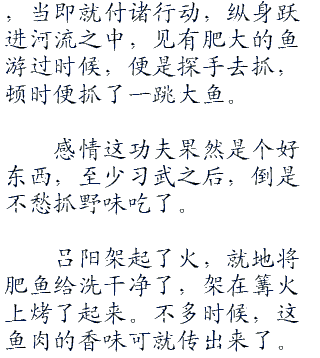 ，当即就付诸行动，纵身跃
进河流之中，见有肥大的鱼
游过时候，便是探手去抓，
顿时便抓了一跳大鱼。
感情这功夫果然是个好
东西，至少习武之后，倒是
不愁抓野味吃了。
吕阳架起了火，就地将
肥鱼给洗干净了，架在篝火
上烤了起来。不多时候，这
鱼肉的香味可就传出来了。